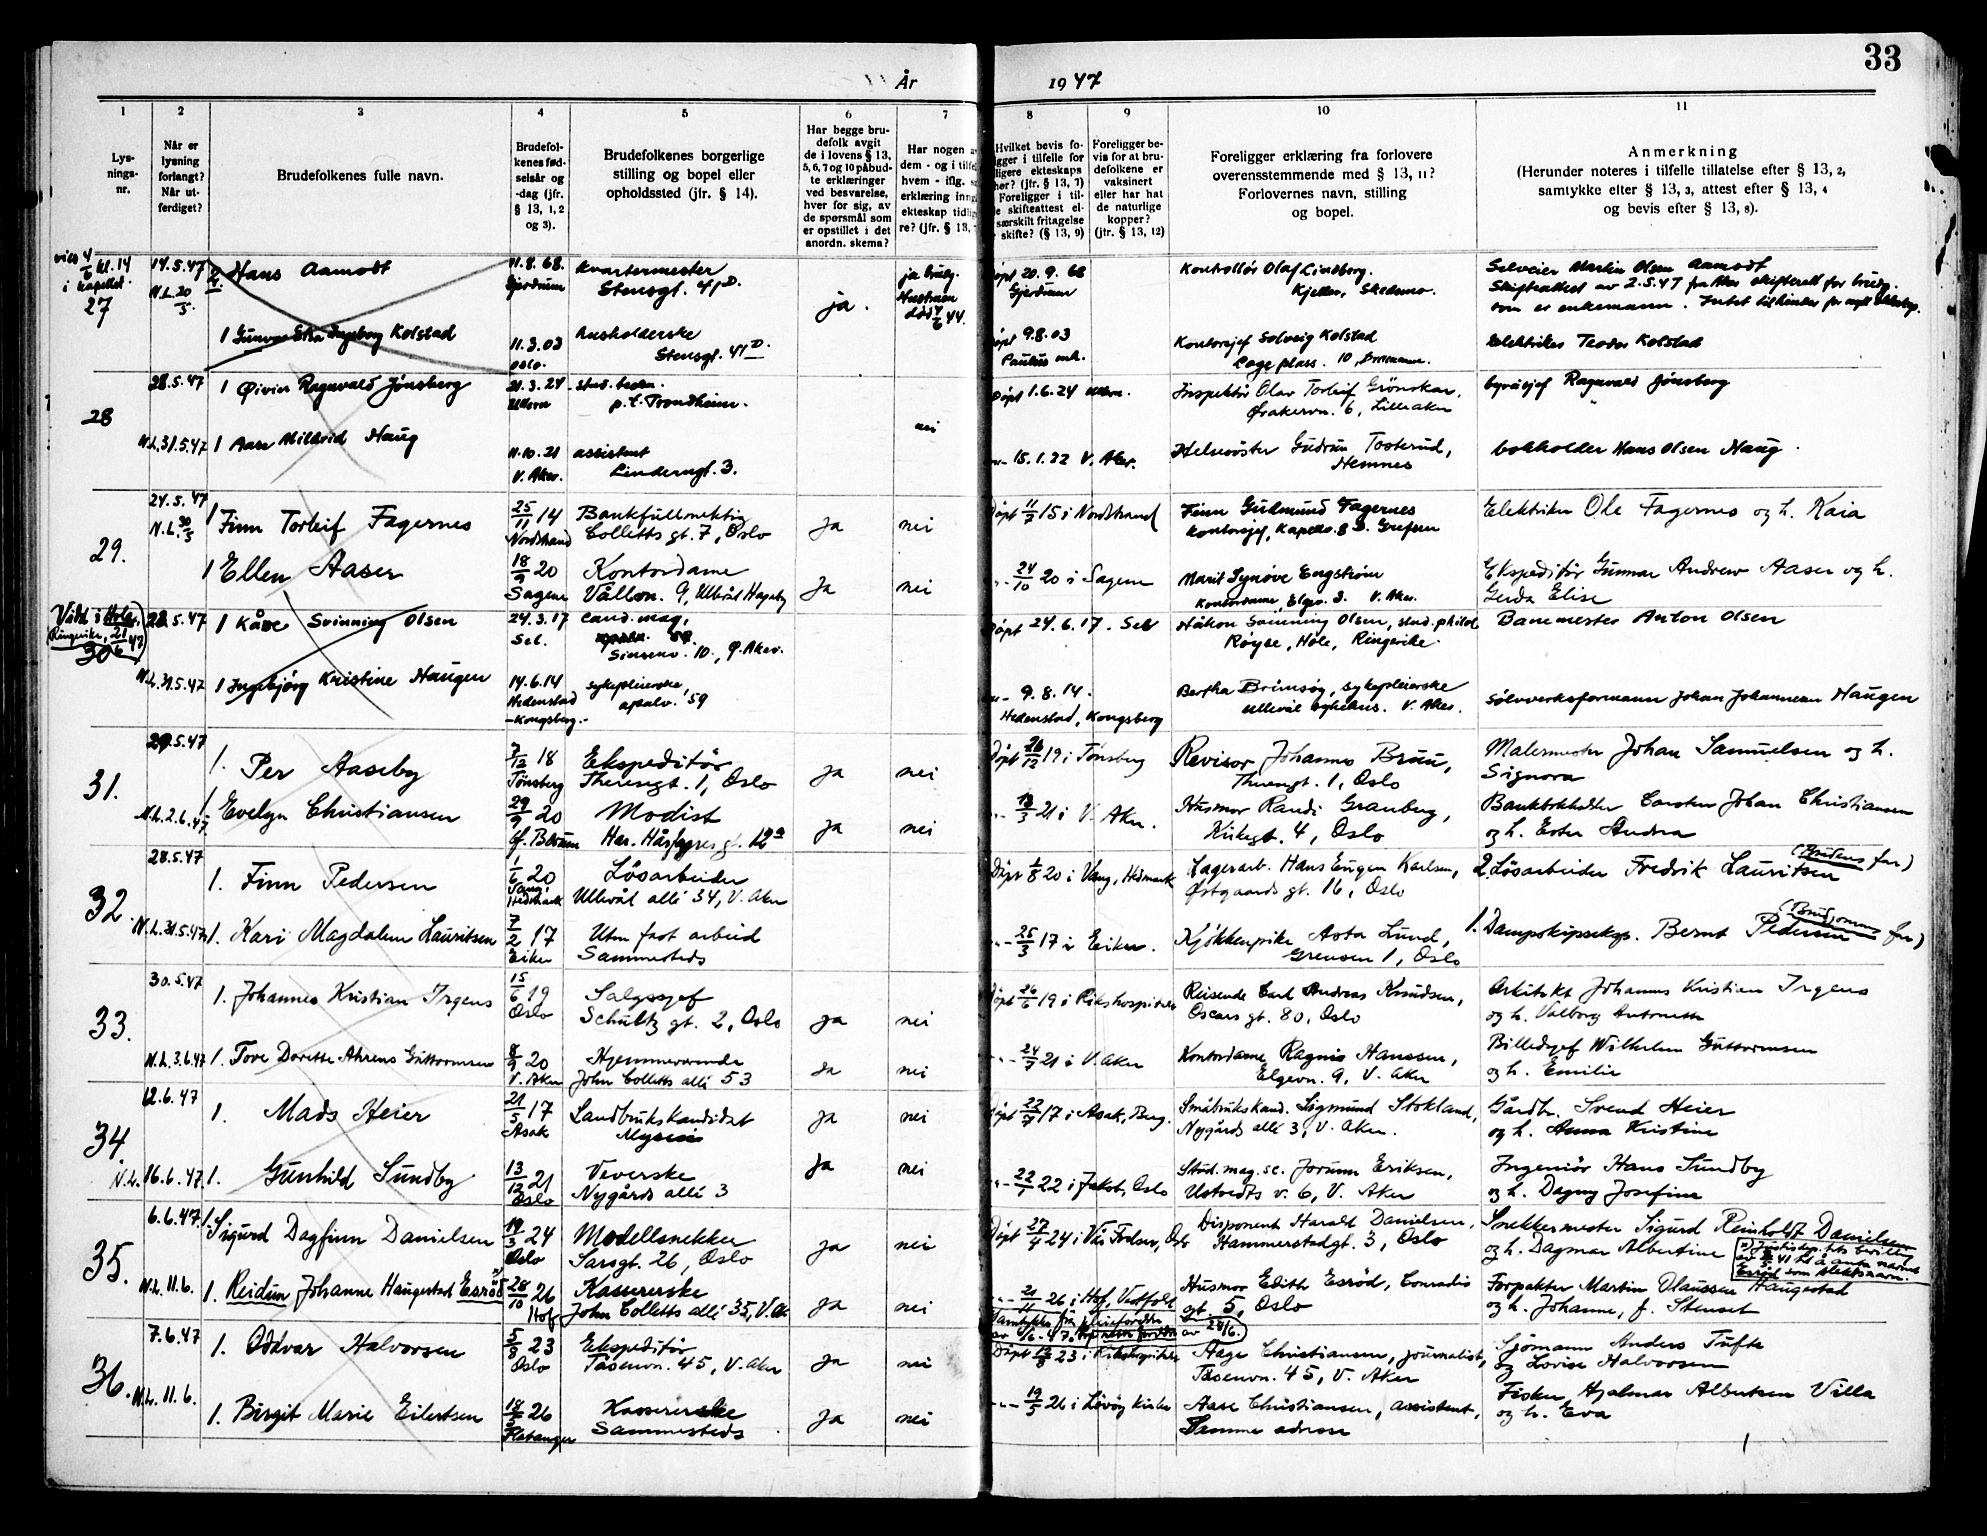 33
År
19 47
1
2
3
4
5
6
7
8
9
10
11
Lys-
nings-
nr.
Når er
lysning
forlangt?
Når ut-
ferdiget?
Brudefolkenes fulle navn.
Brudefol-
kenes fød-
selsår og
-dag (jfr.
§ 13, 1, 2
og 3).
Brudefolkenes borgerlige
stilling og bopel eller
opholdssted (jfr. § 14).
Har begge bru-
defolk avgit
de i lovens § 13,
5, 6, 7 og 10 påbud-
te erklæringer
ved besvarelse,
hver for sig, av
de spørsmål som
er opstillet i det
anordn. skema?
Har nogen a
dem - og i tilfe
hvem - iflg.
erklæring inng
ekteskap tidlig
re? (jfr. § 13,
Hvilket bevis fo-
gger i tilfelle for
ligere ekteskaps
hør? (jfr. § 13, 7)
Foreligger i til-
e skifteattest el-
særskilt fritagelse
skifte? (§ 13, 9)
Foreligger be-
vis for at bru-
defolkene er
vaksinert
eller har hat
de naturlige
kopper?
(jfr. § 13, 12)
Foreligger erklæring fra forlovere
overensstemmende med § 13, 11?
Forlovernes navn, stilling
og bopel.
Anmerkning
(Herunder noteres i tilfelle tillatelse efter § 13, 2,
samtykke efter § 13, 3, attest efter § 13, 4
og bevis efter § 13, 8).
viet 4/6 kl. 14
i kapellet.
27
14.5.47
N.L. 20/5
2 Hans Aamodt
11.8.68.
Gjerdrum
kvartermester
Stensgt. 41 D.
ja.
ja brudg.
Hustruen
død 4/6 44.
døpt 20.9.68
Gjerdrum
Kontrollør Olaf Lindborg.
Kjeller, Skedsmo.
Selveier Martin Olsen Aamodt
Skifteattest av 2.5.47 fra Aker skifterett for brudg.
som er enkemann. Intet til hinder for nytt ekteskap.
1 Gunvor Elsa Ingeborg Kolstad
11.3.03
Oslo.
husholderske
Stensgt. 41 D.
døpt 9.8.03
Paulus mh.
Kontorsjef Solveig Kolstad
Lageplass. 10, Drammen.
elektriker Teodor Kolstad
28
28.5.47
1 Øivier Ragnvald Jønsberg
21.3.24
Ullern
stud. techn.
p.t. Trondheim.
nei
Døpt 1.6.24 Ullern.
Inspektør Olav Torleif Grönskar,
Ørakervn. 6, Lilleaker
byråsjef Ragnvald Jønsberg
N.L. 31.5.47
1 Aase Mildrid Haug
11.10.21
V. Aker.
assistent
Linderngt. 3.
-"- 15.1.22 V. Aker.
Helsesøster Gudrun Tosterud,
Hemnes
bokholder Hans Olsen Haug.
29.
24.5.47
N.L. 30/5
1 Finn Torleif Fagernes
25/11 14
Nordstrand
Bankfullmektig
Colletts gt. 7, Oslo
Ja
nei
Døpt 11/7 15 i Nordstrand
Finn Gudmund Fagernes
Kontorsjef, Kapellv. 8 D. Grefsen
Elektriker Ole Fagernes og h. Kaia
1 Ellen Aaser
18/9 20
Sagene
Kontordame
Vållvn. 9, Ullevål Hageby
Ja
nei
-"- 24/10 20 i Sagene
Marit Synøve Engström
Kontordame, Elgvn. 3. V. Aker.
Ekspeditør Gunnar Andrew Aaser og h.
Gerda Elise
Viet i Hole
Ringerike, 21/6 47
30
28.5.47
1 Kåre Svinning Olsen
24.3.17
Sel.
cand. mag,
Sinsenv. 10, Ø. Aker.
Døpt 24.6.17. Sel
Håkon Svinning Olsen, stud. philol
Røyse, Hole, Ringerike.
Banemester Anton Olsen
N.L. 31.5.47
1 Ingebjörg Kristine Haugen
14.6.14
Hedenstad
-Kongsberg.-
sykepleierske,
apalv. 59
-"- 9.8.14.
Hedenstad, Kongsberg
Bertha Brimsøy, sykepleierske
Ullevål sykehus. V. Aker.
Sølvverksformann Johan Johannesen Haugen
31.
29.5.47
1. Per Aaseby
7/12 18
Tönsberg
Ekspeditör
Theresgt. 1, Oslo
ja
nei
Döpt 26/12 19 i Tønsberg
Revisor Johannes Bruu,
Theresgt. 1, Oslo
Malermester Johan Samuelsen og h.
Signora
N.L. 2.6.47
1 Evelyn Christiansen
29/9 20
Ø. Bærum
Modist
Har. Hårfagres gt. 12a
ja
nei
-"- 13/3 21 i V. Aker.
Husmor Randi Granberg,
Kirkegt. 4, Oslo
Bankbokholder Carsten Johan Christiansen
og h. Ester Andrea
32.
28.5.47
1. Finn Pedersen
1/6 20
Vang,
Hedmark
Lösarbeider
Ullevål allé 34, V. Aker
Döpt 1/8 20 i Vang, Hedmark
Lagerarb. Hans Eugen Karlsen,
Østgaards gt. 16, Oslo
2. Lösarbeider Fredrik Lauritsen
(Brudens far)
N.L. 31.5.47
1. Kari Magdalene Lauritsen
7/2 17
Eiker
Uten fast arbeid
Sammesteds
-"- 25/3 17 i Eiker.
Kjökkenpike Asta Lund,
Grensen 1, Oslo
1. Dampskipseksp. Bernt Pedersen
(Brudgommens far)
33.
30.5.47
1. Johannes Kristian Irgens
15/6 19
Oslo
Salgssjef
Schultz gt. 2, Oslo
ja
nei
Döpt 26/6 19 i Rikshospitalet
Reisende Carl Andreas Knudsen,
Oscars gt. 80, Oslo
Arkitekt Johannes Kristian Irgens
og h. Valborg Antonette
N.L. 3.6.47
1. Tove Dorette Ahrens Guttormsen
8/9 20
V. Aker
Hjemmeværende
John Colletts allé 53
ja
nei
-"- 24/7 21 i V. Aker
Kontordame Ragni Hanssen,
Elgevn. 9, V. Aker
Billedsjef Wilhelm Guttormsen
og h. Emilie
34
12.6.47
1. Mads Heier
21/5 17
Asak
Landbrukskandidat
Mysen
ja
nei
Döpt 22/7 17 i Asak, Berg.
Småbrukskand. Sigmund Stokland,
Nygårds allé 3, V. Aker.
Gårdbr. Svend Heier
og h. Anna Kristine
N.L. 16.6.47
1. Gunhild Sundby
13/12 21
Oslo
Veverske
Nygårds allé 3
ja
nei
-"- 22/1 22 i Jakob, Oslo
Stud. mag. sc. Jorunn Eriksen,
Ustvedts v. 6, V. Aker
Ingeniör Hans Sundby
og h. Dagny Josefine
35.
6.6.47
1. Sigurd Dagfinn Danielsen
19/3 24
Oslo
Modellsnekker
Sarsgt. 26, Oslo
ja
nei
Döpt 27/4 24 i Vår Frelser, Oslo
Disponent Harald Danielsen,
Hammerstadgt. 3, Oslo
Snekkermester Sigurd Reinholdt Danielsen
og h. Dagmar Albertine
N.L. 11.6.
1. Reidun Johanne Haugestad Esröd
28/10 26
Hof
Kassererske
John Colletts allé 35, V. Ak
ja
nei
-"- 21/11 26 i Hof, Vestfold
Husmor Edith Esröd, Conradis
gt. 5, Oslo
av 28/6.
Forpakter Martin Olaussen Haugestad
og h. Johanne, f. Stenset
36.
7.6.47
1. Oddvar Halvorsen
5/8 23
Oslo
Ekspeditör
Tåsenvn. 45, V. Aker
ja
nei
Döpt 13/8 23 i Rikshospitalet
Aage Christiansen, journalist,
Tåsenvn. 45, V. Aker
Sjömann Anders Tufte
og Lovise Halvorsen
N.L. 11.6.
1. Birgit Marie Eilertsen
18/2 26
Flatanger
Kassererske
Sammesteds
ja
nei
-"- 19/5 26 i Lövöy kirke
Aase Christiansen, assistent,
Samme adresse
Fisker Hjalmar Albertsen Villa
og h. Eva